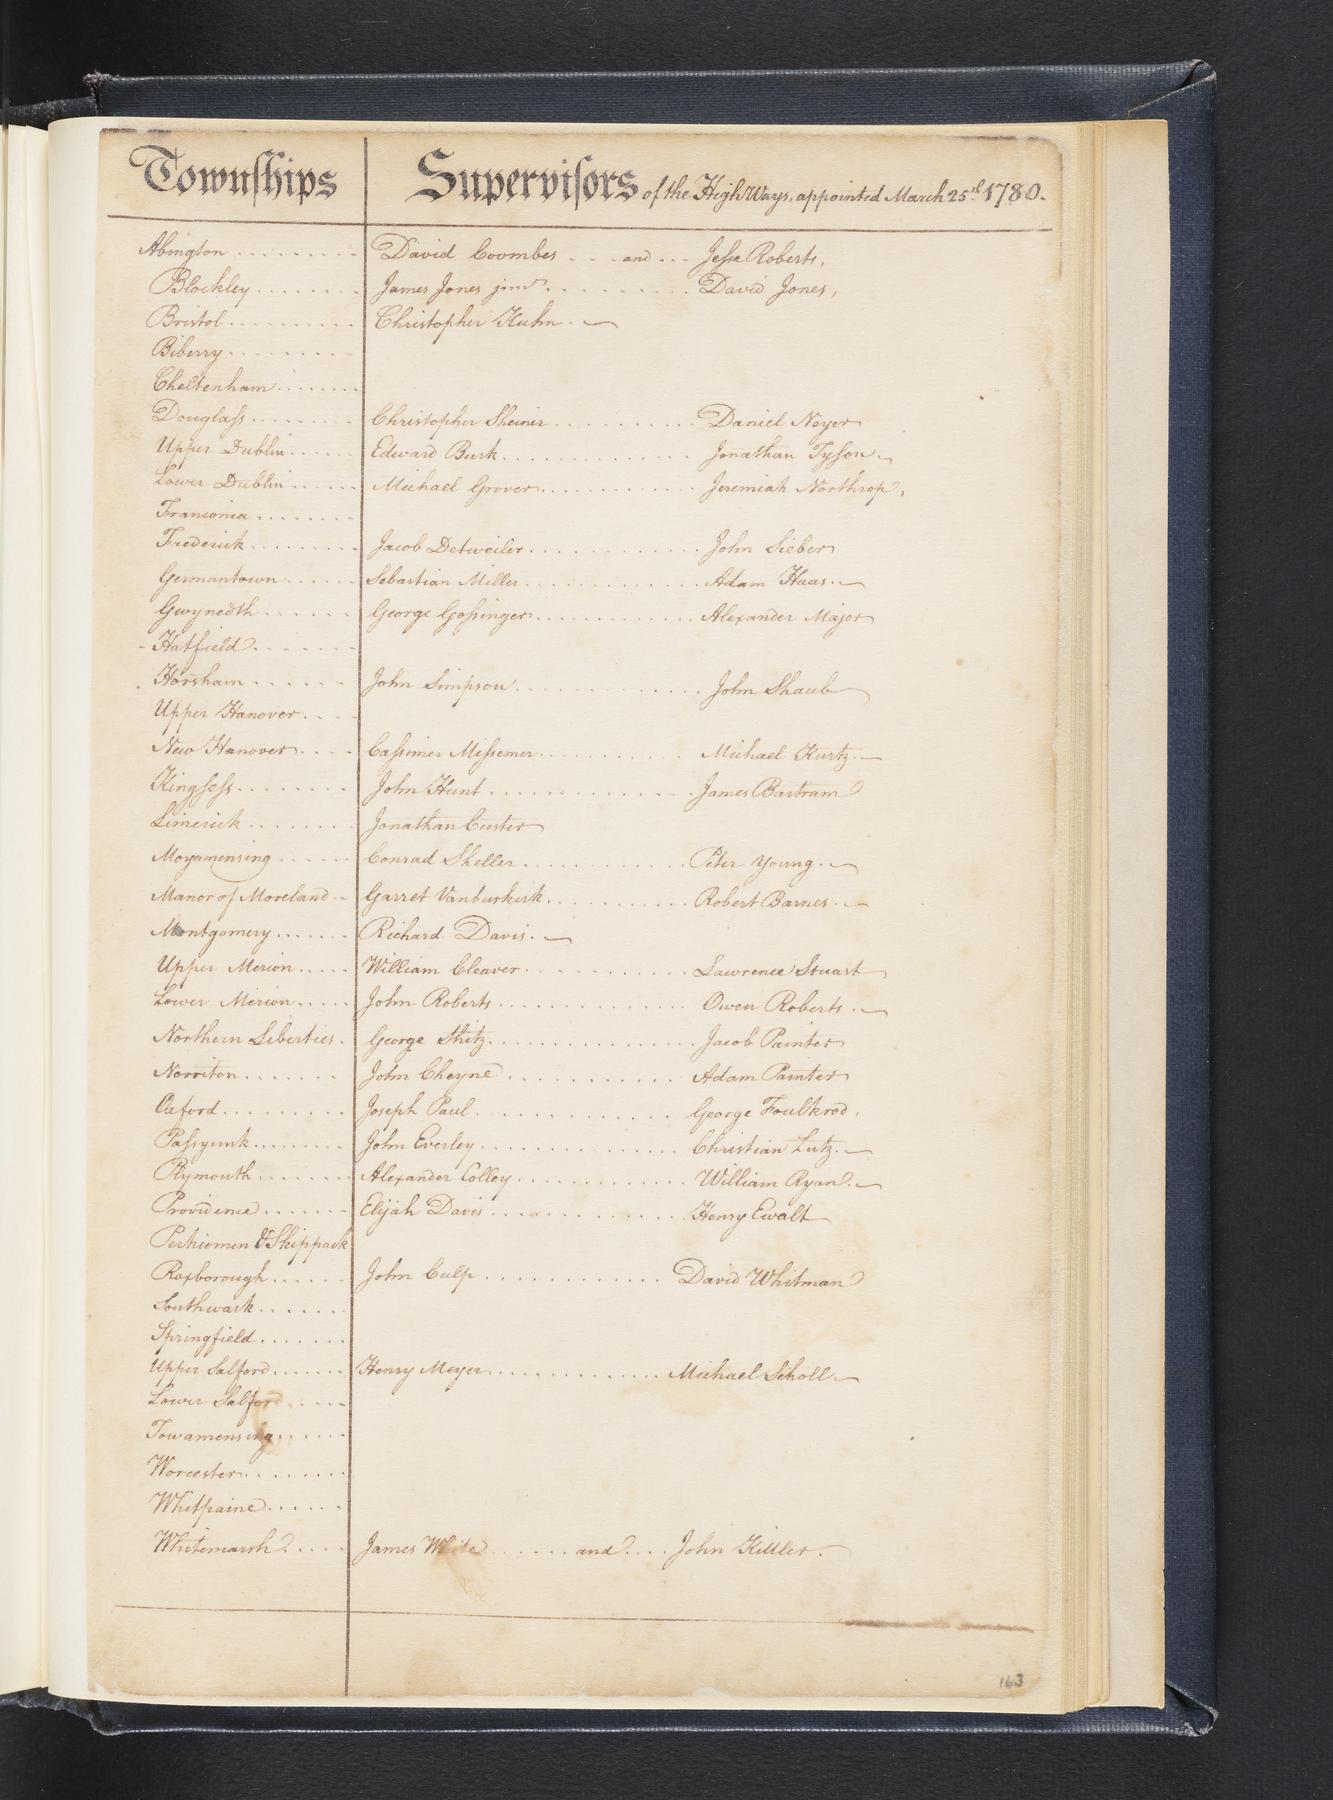 Townships Supervisors of the High Ways, appointed March 25th. 1780.
Abington .......... David Coombes ... and ... Jesse Roberts,
Blockley ........ James Jones junr. ......... David Jones,
Bristol .......... Christopher Kuhn.
Biberry .........
Cheltenham ........
Douglass ......... Christopher Sheiner .......... Daniel Noyer
Upper Dublin ...... Edward Burk ............. Jonathan Tyson
Lower Dublin ...... Michael Grover ............ Jeremiah Northrop,
Franconia ........
Frederick ......... Jacob Detweiler ............ John Sieber
Germantown ...... Sebastian Miller ............ Adam Haas.
Gwynedth ...... George Gossinger ............ Alexander Major
- Hatfield .......
Horsham ...... John Simpson ............ John Shaub
Upper Hanover ....
New Hanover .... Cassimer Missemer .......... Michael Kurtz.
Kingsess ........ John Hunt ............. James Bartram
Limerick ........ Jonathan Custer
Moyamensing ...... Conrad Sheller ............ Peter Young.
Manor of Moreland .. Garret Vanburkirk .......... Robert Barnes.
Montgomery ....... Richard Davis.
Upper Merion ..... William Cleaver ........... Lawrence Stuart
Lower Merion ..... John Roberts .............. Owen Roberts.
Northern Liberties . George Shitz ............... Jacob Painter
Norriton ....... John Cheyne ........... Adam Painter
Oxford ......... Joseph Paul ............. George Foulkrod.
Passyunk ......... John Everley ............... Christian Lutz.
Plymouth ........ Alexander Colley ............ William Ryan.
Providence ....... Elijah Davis .............. Henry Ewalt
Perkiomen & Skippack
Roxborough ...... John Culp ............ David Whitman
Southwark .......
Springfield .......
Upper Salford ...... Henry Meyer ............. Michael Scholl.
Lower Salford .....
Towamensing ......
Worcester ........
Whitpaine ......
Whitemarsh ..... James White ...... and .... John Kittler.
163